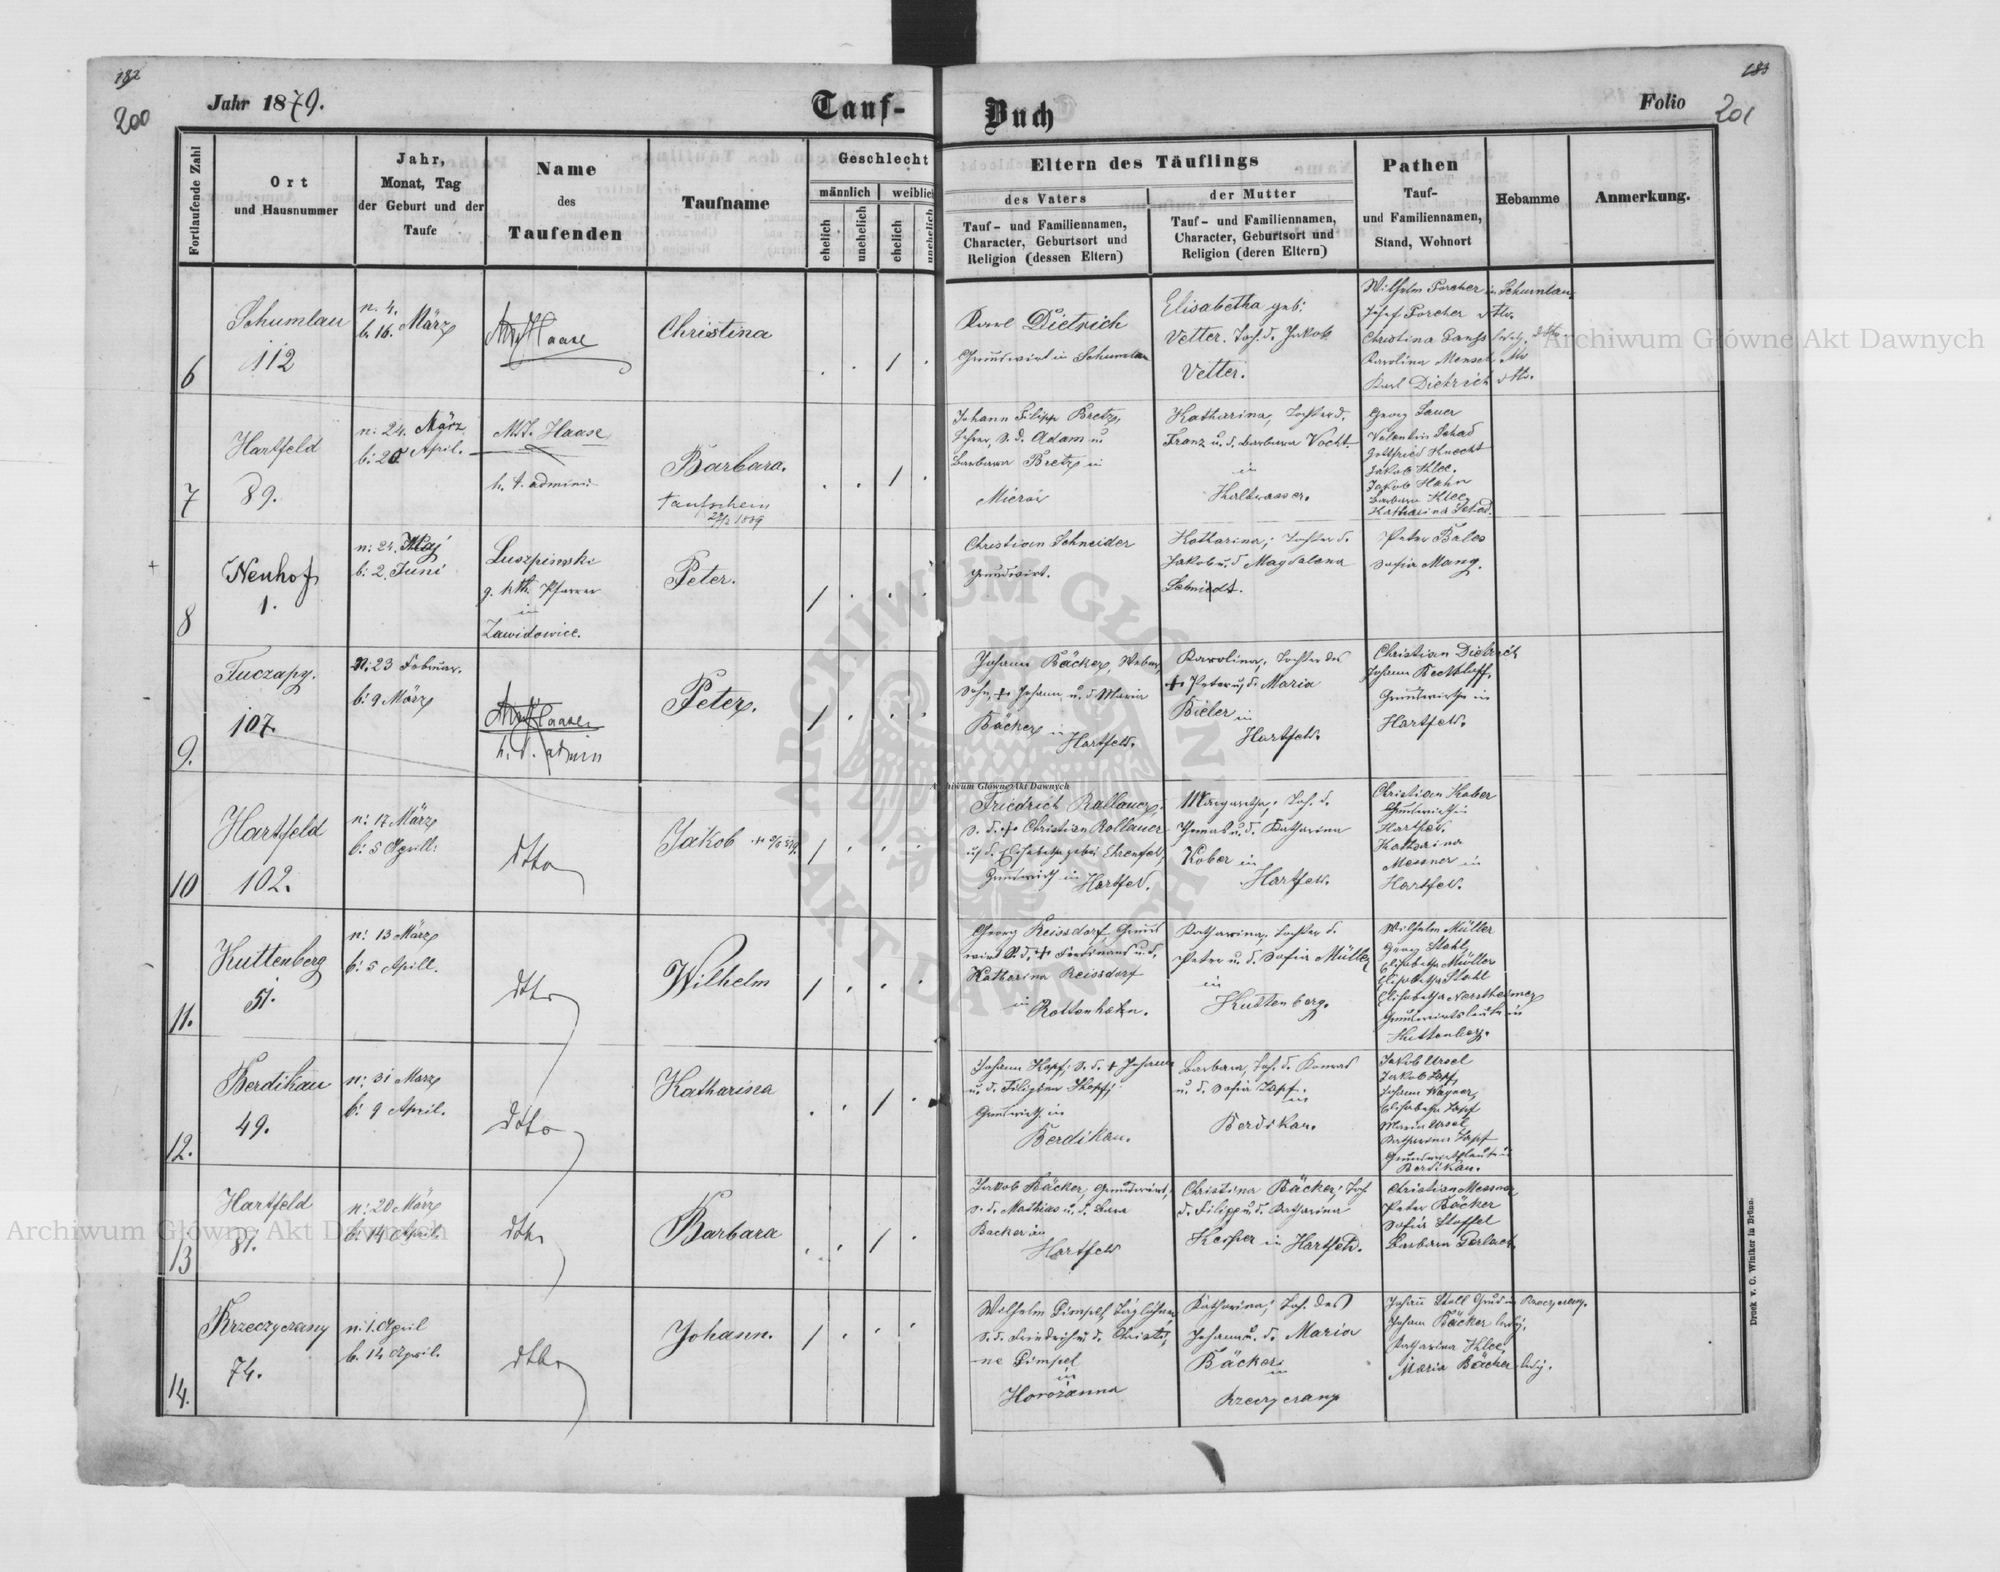 182
200
Jahr 1879.
Tauf-
Buch
Folio
183
201
Fortlaufende Zahl
Ort
und Hausnummer
Jahr,
Monat, Tag
der Geburt und der
Taufe
Name
des
Taufenden
Taufname
Geschlecht
männlich
weiblich
ehelich
unehelich
ehelich
unehelich
Eltern des Täuflings
des Vaters
Tauf- und Familiennamen,
Character, Geburtsort und
Religion (dessen Eltern)
der Mutter
Tauf- und Familiennamen,
Character, Geburtsort und
Religion (deren Eltern)
Pathen
Tauf-
und Familiennamen,
Stand, Wohnort
Hebamme
Anmerkung.
6
Schumlau
112
n. 4.
b. 16. März
Haase
Christina
Karl Dietrich
Grundwirt in Schumlau
Elisabetha geb:
Vetter. Toch. d. Jakob
Vetter.
Wilhelm Porcher in Schumlau.
Josef Porcher dtto.
Christina
Karolina Mensel dtto
Karl Dietrich dtto.
7
Hartfeld
89.
n: 24. März
b: 20 April.
Haase
h. t. admini
Barbara.
Taufschein
1889
Johann Filipp Bretz,
Lehrer, S. d. Adam u
Barbara Bretz in
Mierów
Katharina, Tochter d.
Franz u. d. Barbara Vocht
in
Kaltwasser.
Georg Sauer
Valentin Schad
Gottfried Knecht
Jakob Klee.
Jakob Hahn
Barbara Klee,
Katharina Schad.
8
Neuhof
1.
n: 24. Maj
b: 2. Juni
Luszpinski
g. kth. Pfarrer
in
Zawidowice.
Peter.
Christian Schneider
Grundwirt.
Katharina; Tochter d.
Jakob u. d Magdalena
Schmidt.
Peter Bales
Sofia Mang.
9.
Tuczapy.
107
n: 23 Februar.
b: 9 März
Haase
h. t. admin
Peter.
Johann Bäcker, Weber,
Sohn, + Johann u. d Maria
Bäcker in
Hartfeld.
Karolina, Tochter des
+ Peter u, d. Maria
Bieler in
Hartfeld.
Christian Dietrich
Johann Rechtloff,
Grundwirthe in
Hartfeld.
10
Hartfeld
102.
n: 17 März
b: 5 Aprill:
dtto
Jakob
Friedrich Rollauer,
S. d. + Christian Rollauer
u, d. Elisabetha gebor Ehrenfeld,
Grundwirth in Hartfeld.
Margaretha; Toch. d.
Thomas u. d. Katharina
Kober in
Hartfeld.
Christian Kober
Grundwirth in
Hartfeld.
Katharina
Messner in
Hartfeld.
11.
Kuttenberg
51.
n: 13 März
b: 5 Aprill.
dtto
Wilhelm
Georg Reissdorf Grund
wirt S. d. + Ferdinand u. d.
Katharina Reissdorf
in
Rottenhahn.
Katharina, Tochter d.
Peter u. d. Sofia Müller
in
Kuttenberg.
Wilhelm Müller
Georg Stahl
Elisabetha Müller
Elisabetha Stahl
Elisabetha Nerstheimer
Grundwirtsleute in
Kuttenberg.
12.
Berdikau
49.
n: 31 März
b: 9 April.
dtto
Katharina
Johann Kopf; S. d. + Johann
u. d. Filippina Kopf;
Grundwirth in
Berdikau.
Barbara, Toch. d. Konrad
u. d. Sofia Zapf.
in
Berdikau.
Jakob Ursel
Jakob Zapf
Johann Wagner,
Elisabetha Zapf
Maria Ursel
Katharina Zapf
Grundwirthsleute in
Berdikau.
13
Hartfeld
81.
n: 20 März
b: 14 April.
dtto
Barbara
Jakob Bäcker, Grundwirt,
S. d. Mathias u. d.
Backer in
Hartfeld
Christina Bäcker; Toch.
d. Filipp u. d. Katharina
Kesper in Hartfeld.
Christian Messner
Peter Bäcker
Sofia Stoffel
Barbara Gerlach.
14.
Krzeczyczany
74.
n: 1. April
b. 14 April.
dtto
Johann.
Wilhelm Gimpel, Taglöhner
S. d. Friedrich u d. Christi,
-ne Gimpel
in
Horożanna
Katharina; Toch. des
Johann u. d. Maria
Bäcker
in
Krzeczyczany
Johann Stoll Grund in Krzeczyczany.
Johann Bäcker ledig.
Katharina Klee,
Maria Bäcker ledig.
Druck v. C. Winiker in Brünn.
Archiwum Główne Akt Dawnych
Archiwum Główne Akt Dawnych
Archiwum Główne Akt Dawnych
ARCHIWUM GŁÓWNE AKT DAWNYCH